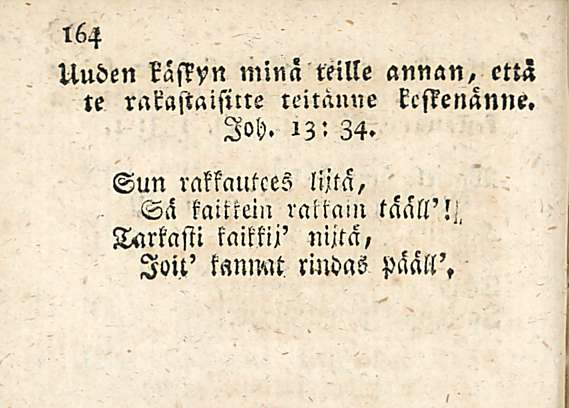 164
Uuden käskyn minä teille annan, että
te rakastaisitte teitänne keskenänne.
Joh. 13: 34.
Sun rakkautees lijtä,
Sä kaikkein rakkain tääll'!
Tarkasti kaikkij' nijtä,
Joit' kannat rindas pääll'.